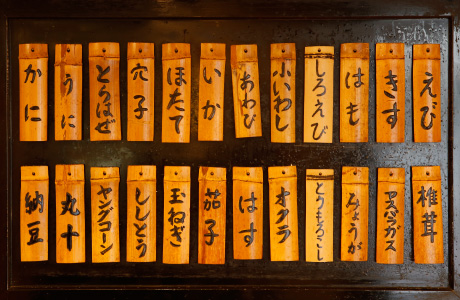 えび
きす
はも
しろえび
小いわし
あわび
いか
ほたて
穴子
とらはぜ
うに
かに
椎茸
アスパラガス
みょうが
とうもろこし
オクラ
はす
茄子
玉ねぎ
ししとう
ヤングコーン
丸十
納豆